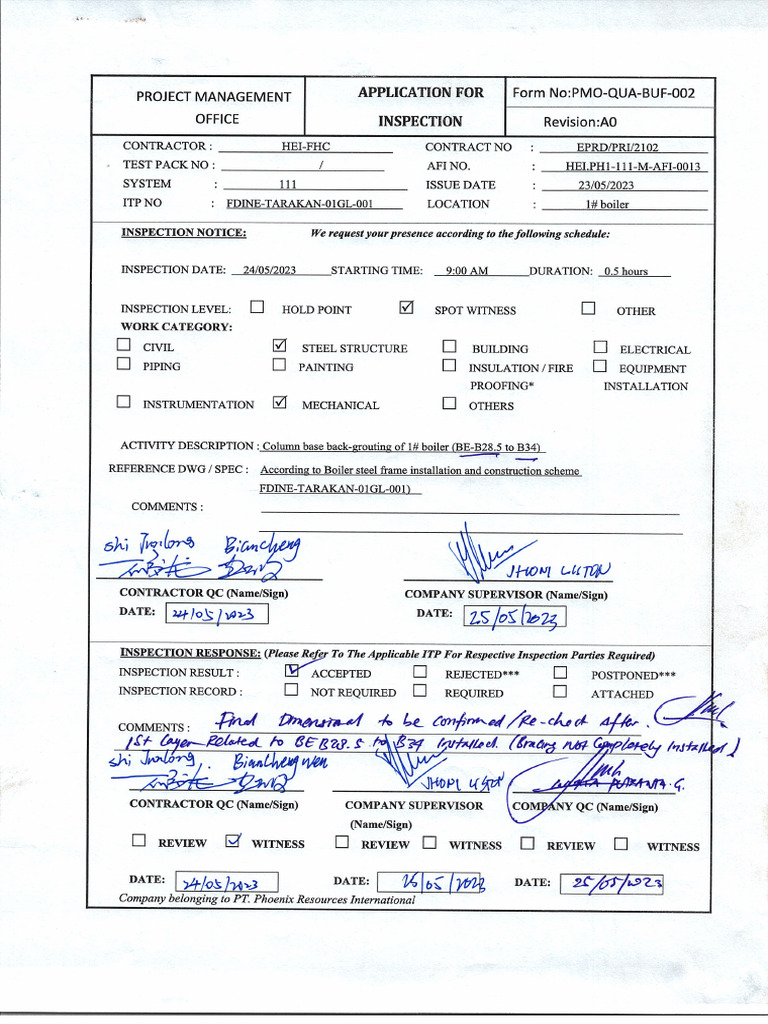 PROJECT MANAGEMENT OFFICE
APPLICATION FOR INSPECTION
Form No:PMO-QUA-BUF-002
Revision:A0
CONTRACTOR : HEI-FHC CONTRACT NO : EPRD/PRI/2102
TEST PACK NO : / AFI NO. : HEI.PH1-111-M-AFI-0013
SYSTEM : 111 ISSUE DATE : 23/05/2023
ITP NO : FDINE-TARAKAN-01GL-001 LOCATION : 1# boiler
INSPECTION NOTICE: We request your presence according to the following schedule:
INSPECTION DATE: 24/05/2023 STARTING TIME: 9:00 AM DURATION: 0.5 hours
INSPECTION LEVEL: ☐ HOLD POINT ☑ SPOT WITNESS ☐ OTHER
WORK CATEGORY:
☐ CIVIL ☑ STEEL STRUCTURE ☐ BUILDING ☐ ELECTRICAL
☐ PIPING ☐ PAINTING ☐ INSULATION / FIRE PROOFING* ☐ EQUIPMENT INSTALLATION
☐ INSTRUMENTATION ☑ MECHANICAL ☐ OTHERS
ACTIVITY DESCRIPTION : Column base back-grouting of 1# boiler (BE-B28.5 to B34)
REFERENCE DWG / SPEC : According to Boiler steel frame installation and construction scheme
FDINE-TARAKAN-01GL-001)
COMMENTS :
Biancheng
JHONI
CONTRACTOR QC (Name/Sign) COMPANY SUPERVISOR (Name/Sign)
DATE: 24/05/2023 DATE: 25/05/2023
INSPECTION RESPONSE: (Please Refer To The Applicable ITP For Respective Inspection Parties Required)
INSPECTION RESULT : ☑ ACCEPTED ☐ REJECTED*** ☐ POSTPONED***
INSPECTION RECORD : ☐ NOT REQUIRED ☐ REQUIRED ☐ ATTACHED
COMMENTS : Final Dimensional to be confirmed/Re-check After.
1st Layer Related to BE B28.5 to B34 Installed. (Bracing Not Completely Installed)
Bianchengwen JHONI
CONTRACTOR QC (Name/Sign) COMPANY SUPERVISOR (Name/Sign) COMPANY QC (Name/Sign)
☐ REVIEW ☑ WITNESS ☐ REVIEW ☐ WITNESS ☐ REVIEW ☐ WITNESS
DATE: 24/05/2023 DATE: /05/2023 DATE: 25/05/2023
Company belonging to PT. Phoenix Resources International